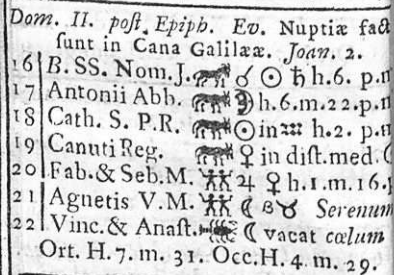 Dom. II. post. Epiph. Ev. Nuptiæ fact
sunt in Cana Galilææ. Joan. 2.
16 B. SS. Nom. J. ☌ ☉ ♄ h. 6. p. m
17 Antonii Abb. h. 6. m. 22. p. m
18 Cath. S. P. R. ☉ in ♒ h. 2. p. m
19 Canuti Reg. ♀ in dist. med. C
20 Fab. & Seb. M. ♃ ♀ h. 1. m. 16. p
21 Agnetis V. M. ☾ B ♉ Serenum
22 Vinc. & Anast. ☾ vacat cœlum
Ort. H. 7. m. 31. Occ. H. 4. m. 29.